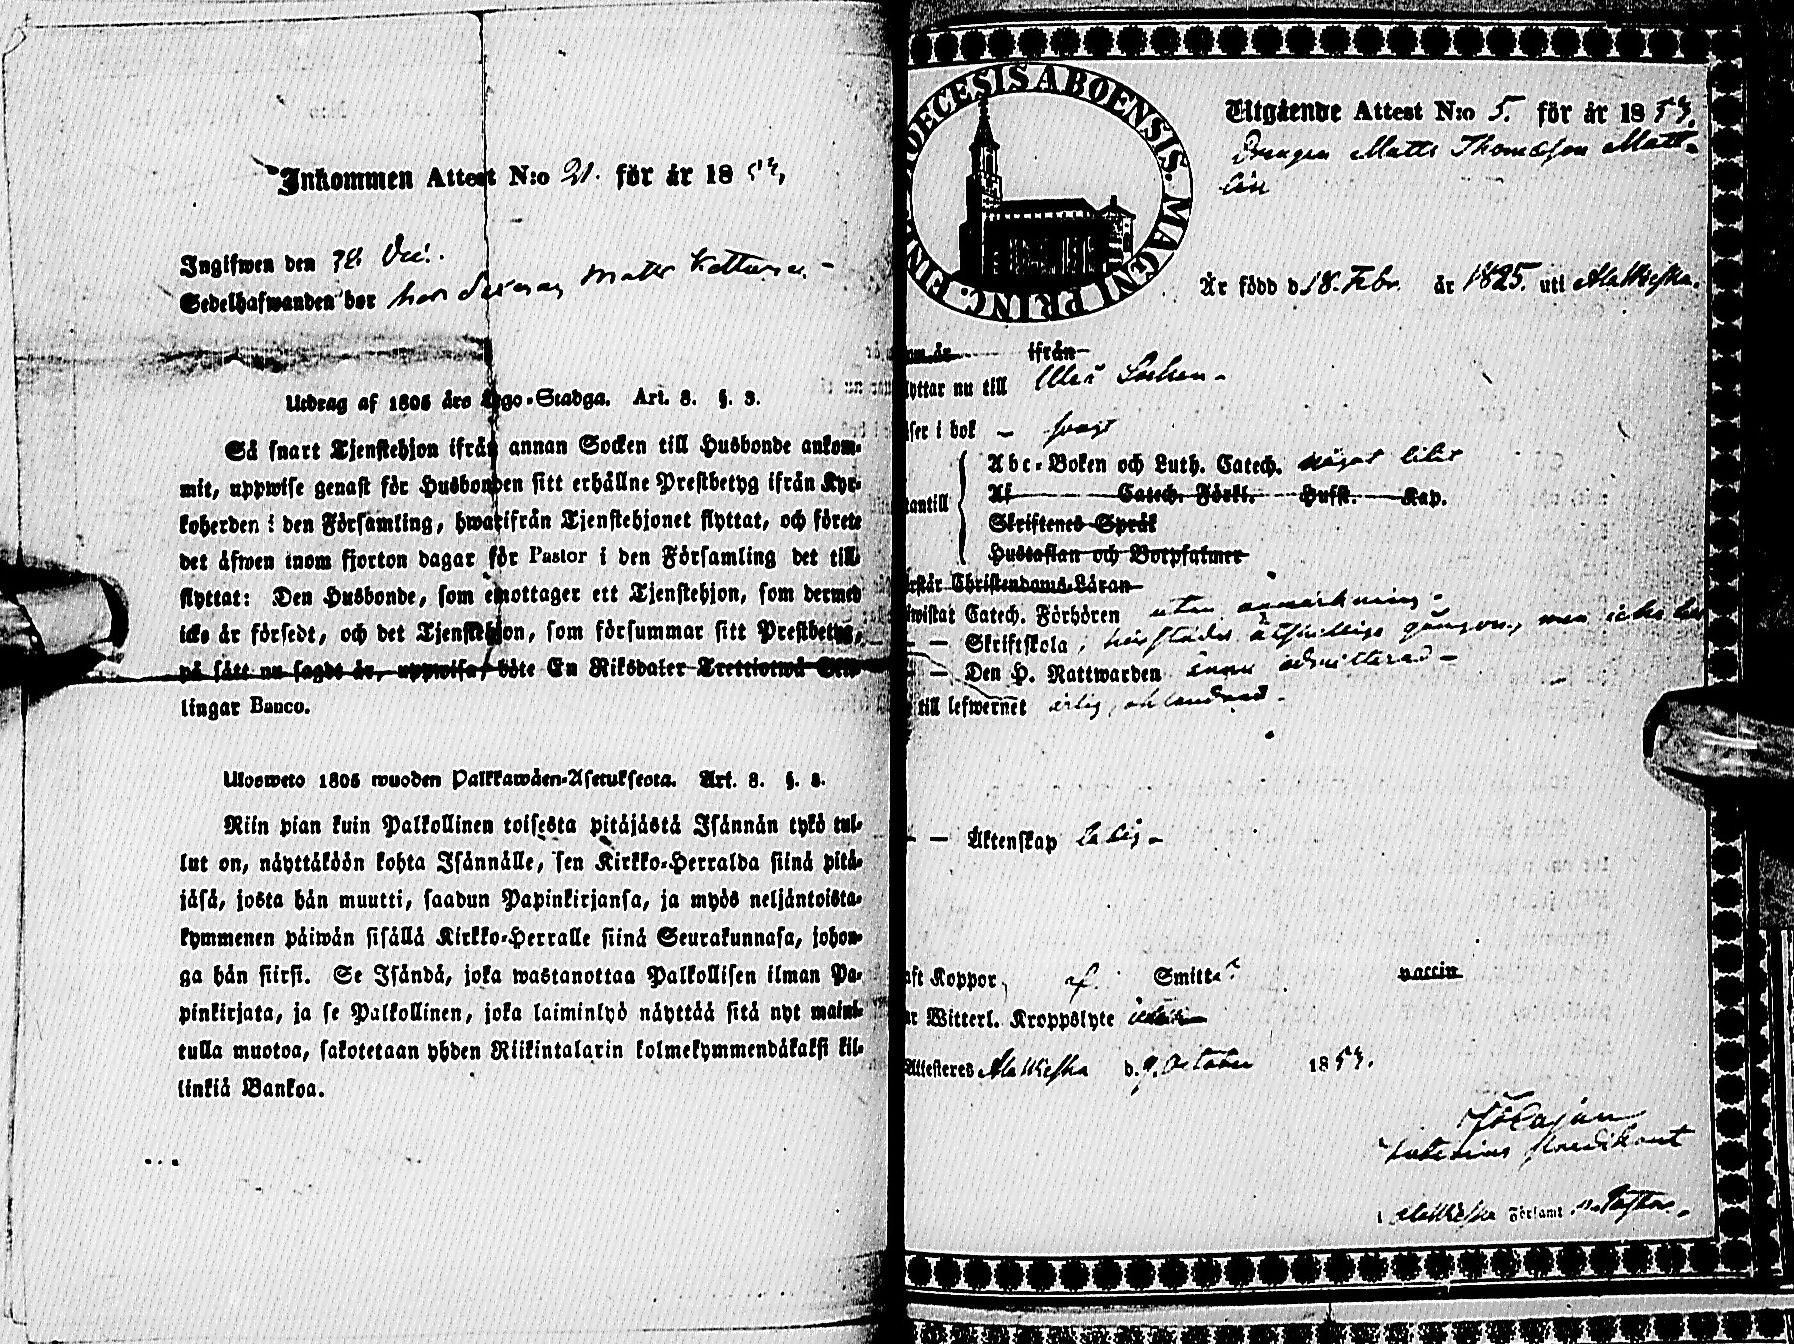 Inkommen Attest N:o 21. för år 18
Ingifwen den
Sedelhafwanden bor hos
Utdrag af 1805 års Lego-Stadga. Art. 8. §. 3.
Så snart Tjenstehjon ifrån annan Socken till Husbonde ankom-
mit, uppwise genast för Husbonden sitt erhållne Prestbetyg ifrån Kyr-
koherden i den Församling, hwarifrån Tjenstehjonet flyttat, och förete
det äfwen inom fjorton dagar för Pastor i den Församling det till-
flyttat: Den Husbonde, som emottager ett Tjenstehjon, som dermed
icke är försedt, och det Tjenstehjon, som försummar sitt Prestbetyg,
på sätt nu sagdt är, uppwisa, böte En Riksdaler Trettiotwå Skil-
lingar Banco.
Ulosweto 1805 wuoden Palkkawäen-Asetuksesta. Art. 8. §. 3.
Niin pian kuin Palkollinen toisesta pitäjästä Isännän tykö tul-
lut on, näyttäköön kohta Isännälle, sen Kirkko-Herralda siinä pitä-
jäsä, josta hän muutti, saadun Papinkirjansa, ja myös neljäntoista-
kymmenen päiwän sisällä Kirkko-Herralle siinä Seurakunnasa, johon-
ga hän siirsi. Se Isändä, joka wastanottaa Palkollisen ilman Pa-
pinkirjata, ja se Palkollinen, joka laiminlyö näyttää sitä nyt maini-
tulla muotoa, sakotetaan yhden Riikintalarin kolmekymmendäkaksi kil-
linkiä Bankoa.
DIOECESIS ABOENSIS. MAGNI PRINC. FINL.
Utgående Attest N:o 5. för år 18
Drengen Matts Thomasson Matt-
lin
Är född d. 18. Febr. år 1825. uti Alawieska.
om år ifrån
lyttar nu till Uleå Socken.
äser i bok – svagt
Abc-Boken och Luth. Catech. något litet
Af Catech. Förkl. Hufst. Kap.
antill
Skriftenes Språk
Hustaflan och Botpsalmer
rstår Christendoms-Läran
iwistat Catech. Förhören utan anmärkning.
– Skriftskola, härstädes åtskillige gånger, men icke
– Den H. Nattwarden ännu admitterad
till lefwernet ärlig,
– – Äktenskap ledig.
aft Koppor, af Smitta vaccin
ar Witterl. Kroppslyte
Attesteres Alawieska d. 9. October 18
i Alawieska Församl.